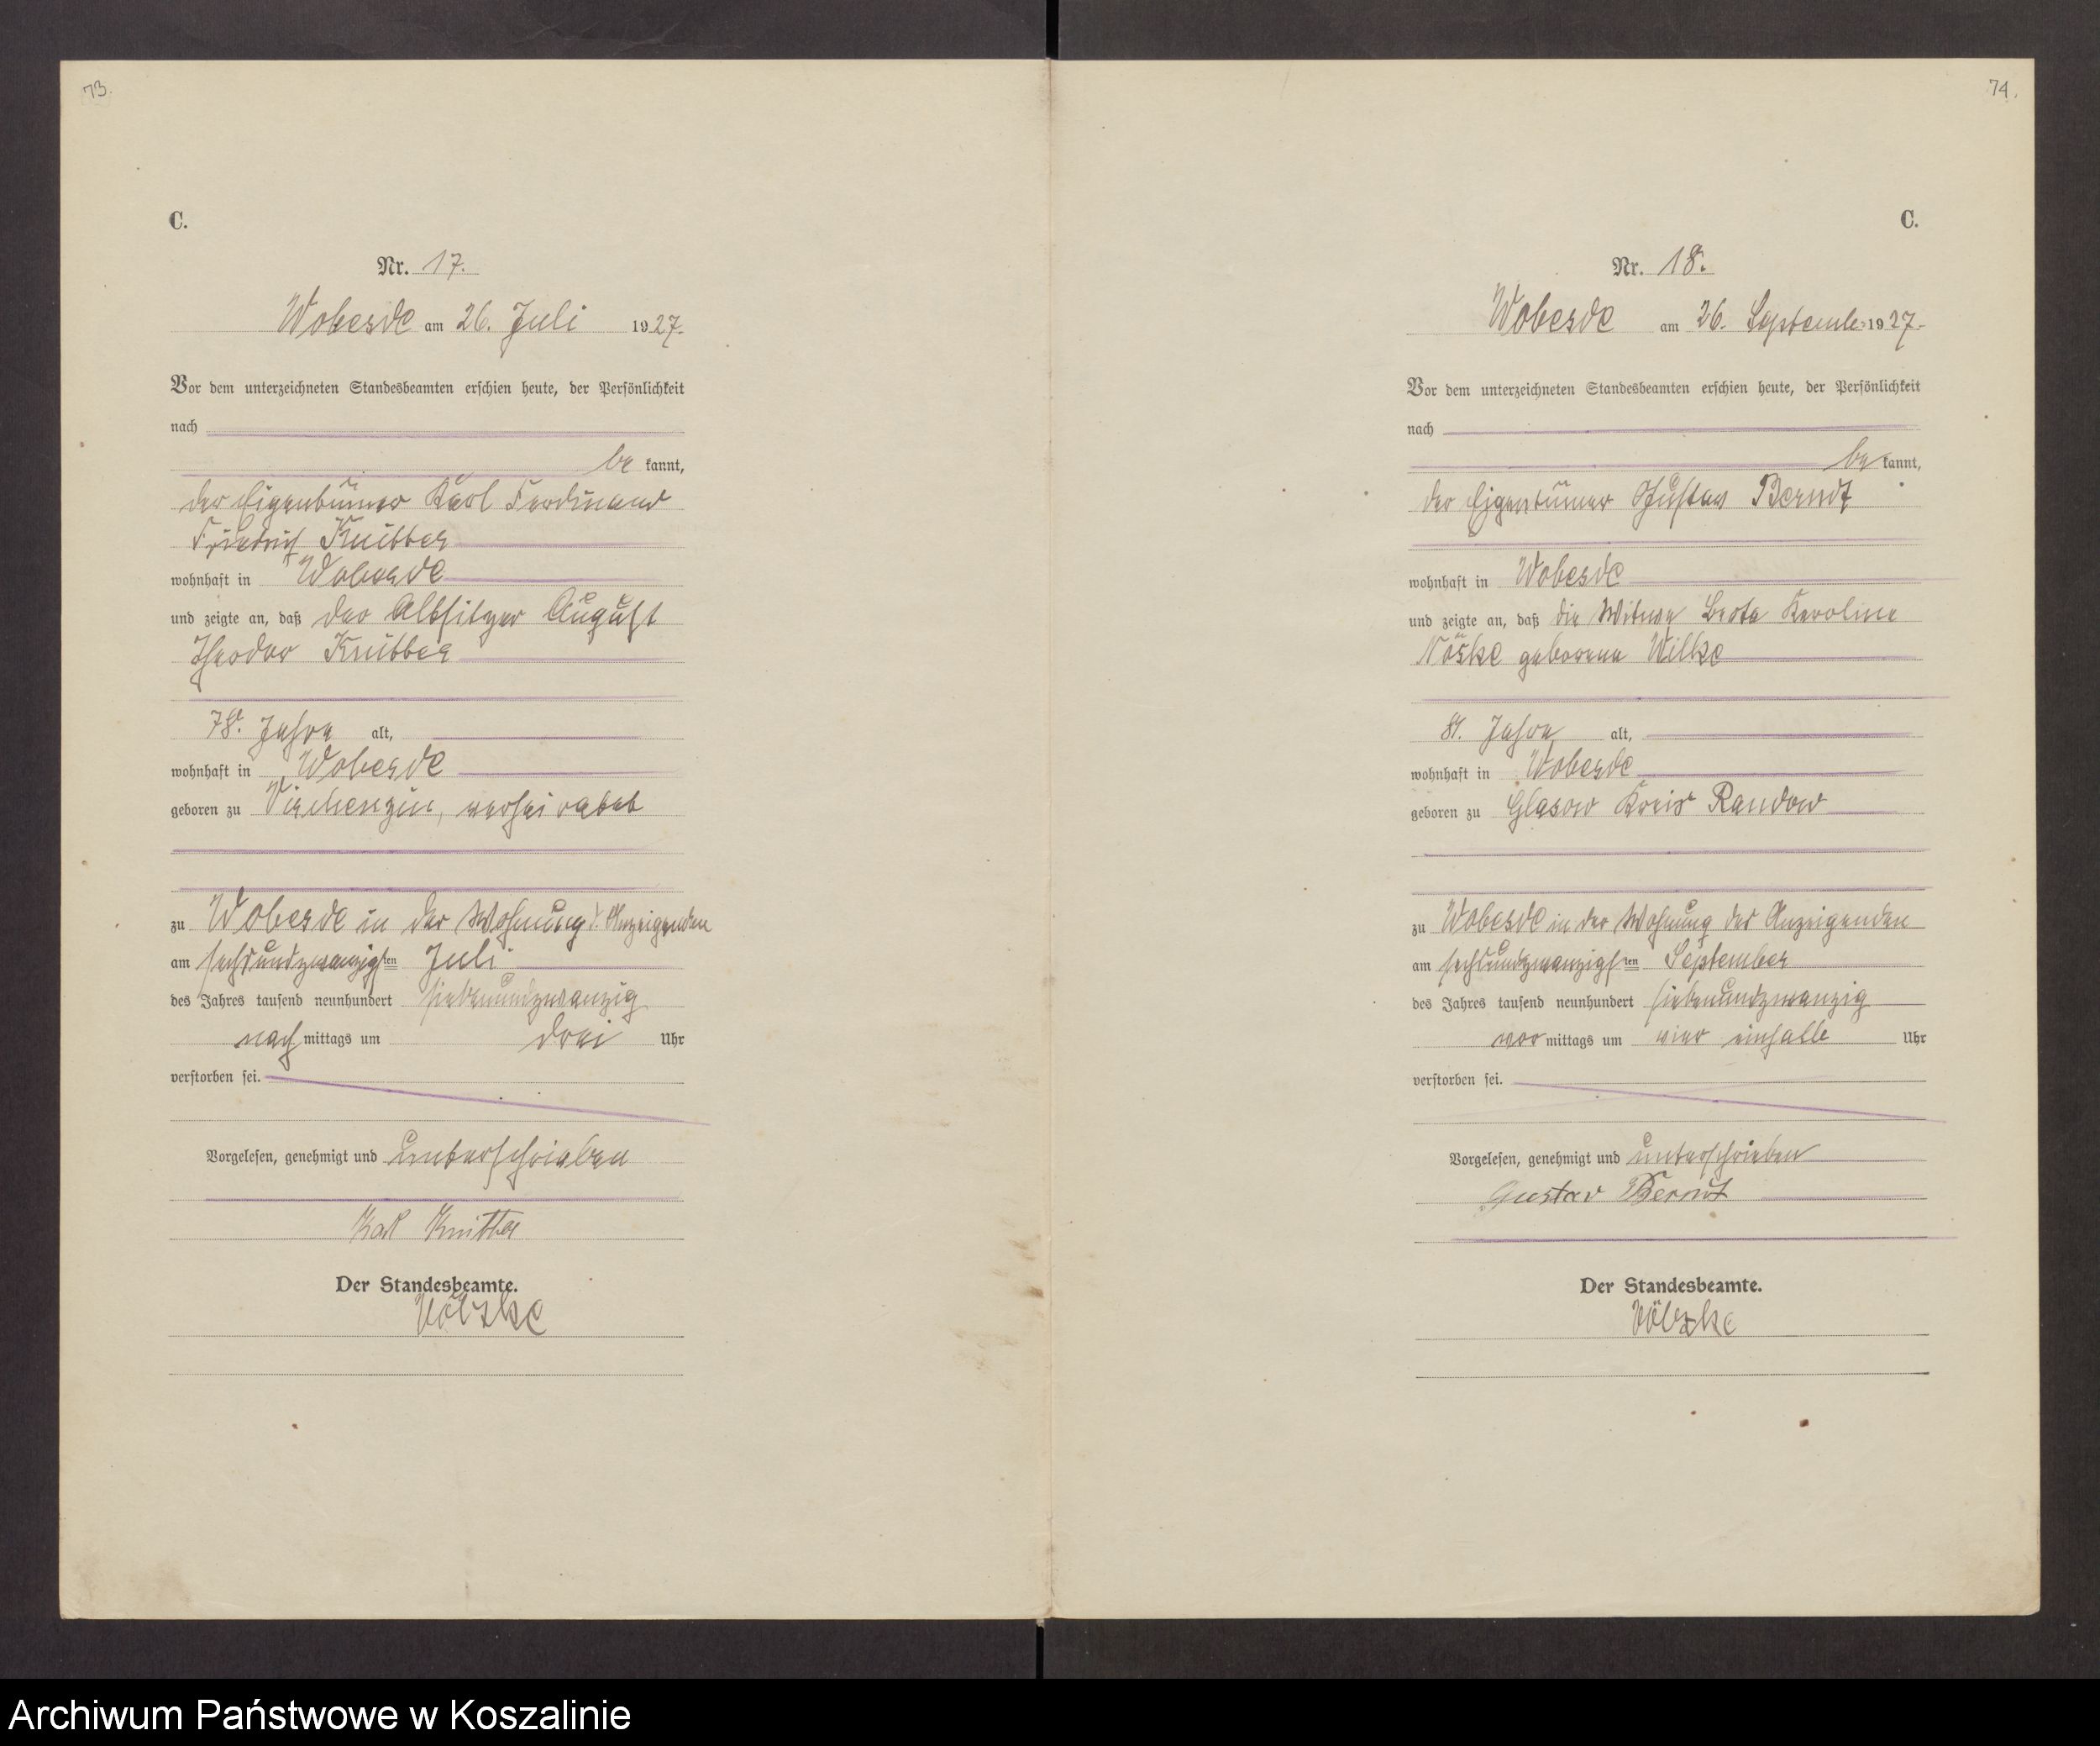 73.
C.
Nr. 17.
Wobesde am 26. Juli 1927.
Vor dem unterzeichneten Standesbeamten erschien heute, der Persönlichkeit
nach
be kannt,
der Eigentümer Karl Ferdinand
Friedrich Knitter
wohnhaft in Wobesde
und zeigte an, daß der Altsitzer August
Theodor Knitter
78. Jahre alt,
wohnhaft in Wobesde
geboren zu Vierchenzin, verheiratet
zu Wobesde in der Wohnung d. Anzeigenden
am sechsundzwanzigsten Juli
des Jahres tausend neunhundert siebenundzwanzig
nach mittags um drei Uhr
verstorben sei.
Vorgelesen, genehmigt und unterschrieben
Karl Knitter
Der Standesbeamte.
Völzke
74.
C.
Nr. 18.
Wobesde am 26. September 1927.
Vor dem unterzeichneten Standesbeamten erschien heute, der Persönlichkeit
nach
be kannt,
der Eigentümer Gustav Berndt
wohnhaft in Wobesde
und zeigte an, daß die Witwe Karoline
Nöske geborene Wilke
Jahre alt,
wohnhaft in Wobesde
geboren zu Glasow Kreis Randow
zu Wobesde in der Wohnung des Anzeigenden
am sechsundzwanzigsten September
des Jahres tausend neunhundert siebenundzwanzig
vor mittags um vier einhalb Uhr
verstorben sei.
Vorgelesen, genehmigt und unterschrieben
Gustav Berndt
Der Standesbeamte.
Völzke
Archiwum Państwowe w Koszalinie